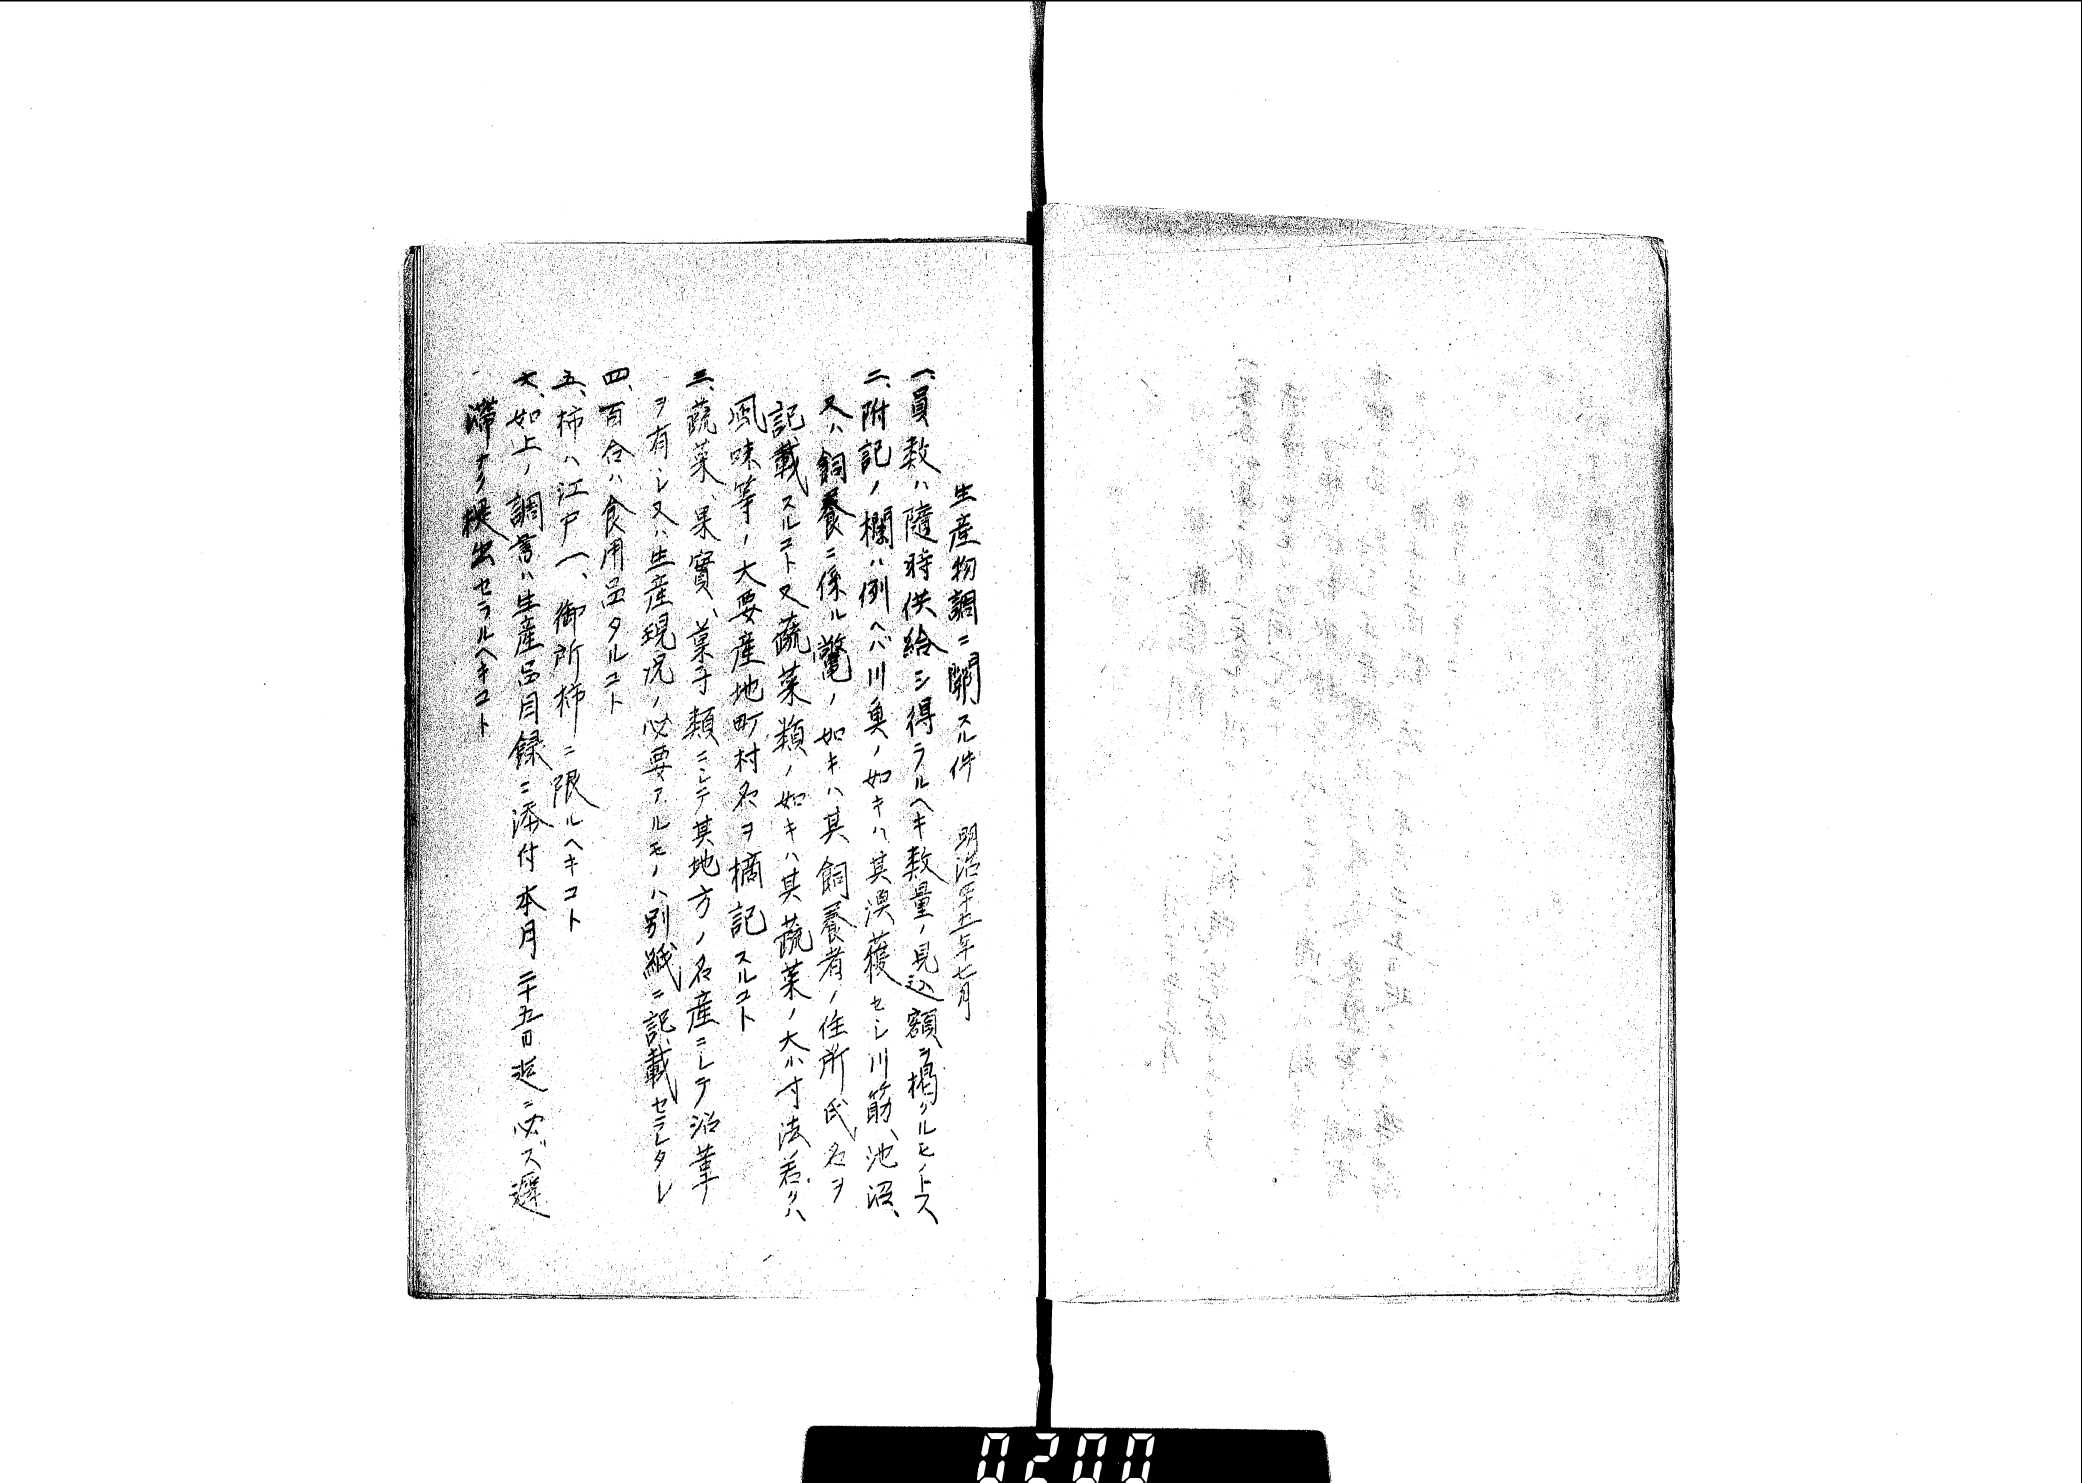 生産物調ニ関スル件　明治四十五年七月
一、員数ハ随時供給シ得ラルヘキ数量ノ見込額ヲ掲クルモノトス
二、附記ノ欄ハ例ヘバ川魚ノ如キハ其漁獲セシ川筋、池沼、
又ハ飼養ニ係ル鼈ノ如キハ其飼養者ノ住所氏名ヲ
記載スルコト又蔬菜類ノ如キハ其蔬菜ノ大小寸法若クハ
風味等ノ大要産地町村名ヲ摘記スルコト
三、蔬菜、果實、菓子類ニシテ其地方ノ名産ニシテ沿革
ヲ有シ又ハ生産現況ノ必要アルモノハ別紙ニ記載セラレタシ
四、百合ハ食用品タルコト
五、柿ハ江戸一、御所柿ニ限ルヘキコト
六、如上ノ調書ハ生産品目録ニ添付本月二十五日迄ニ必ズ遅
滞ナク提出セラルヘキコト
0200